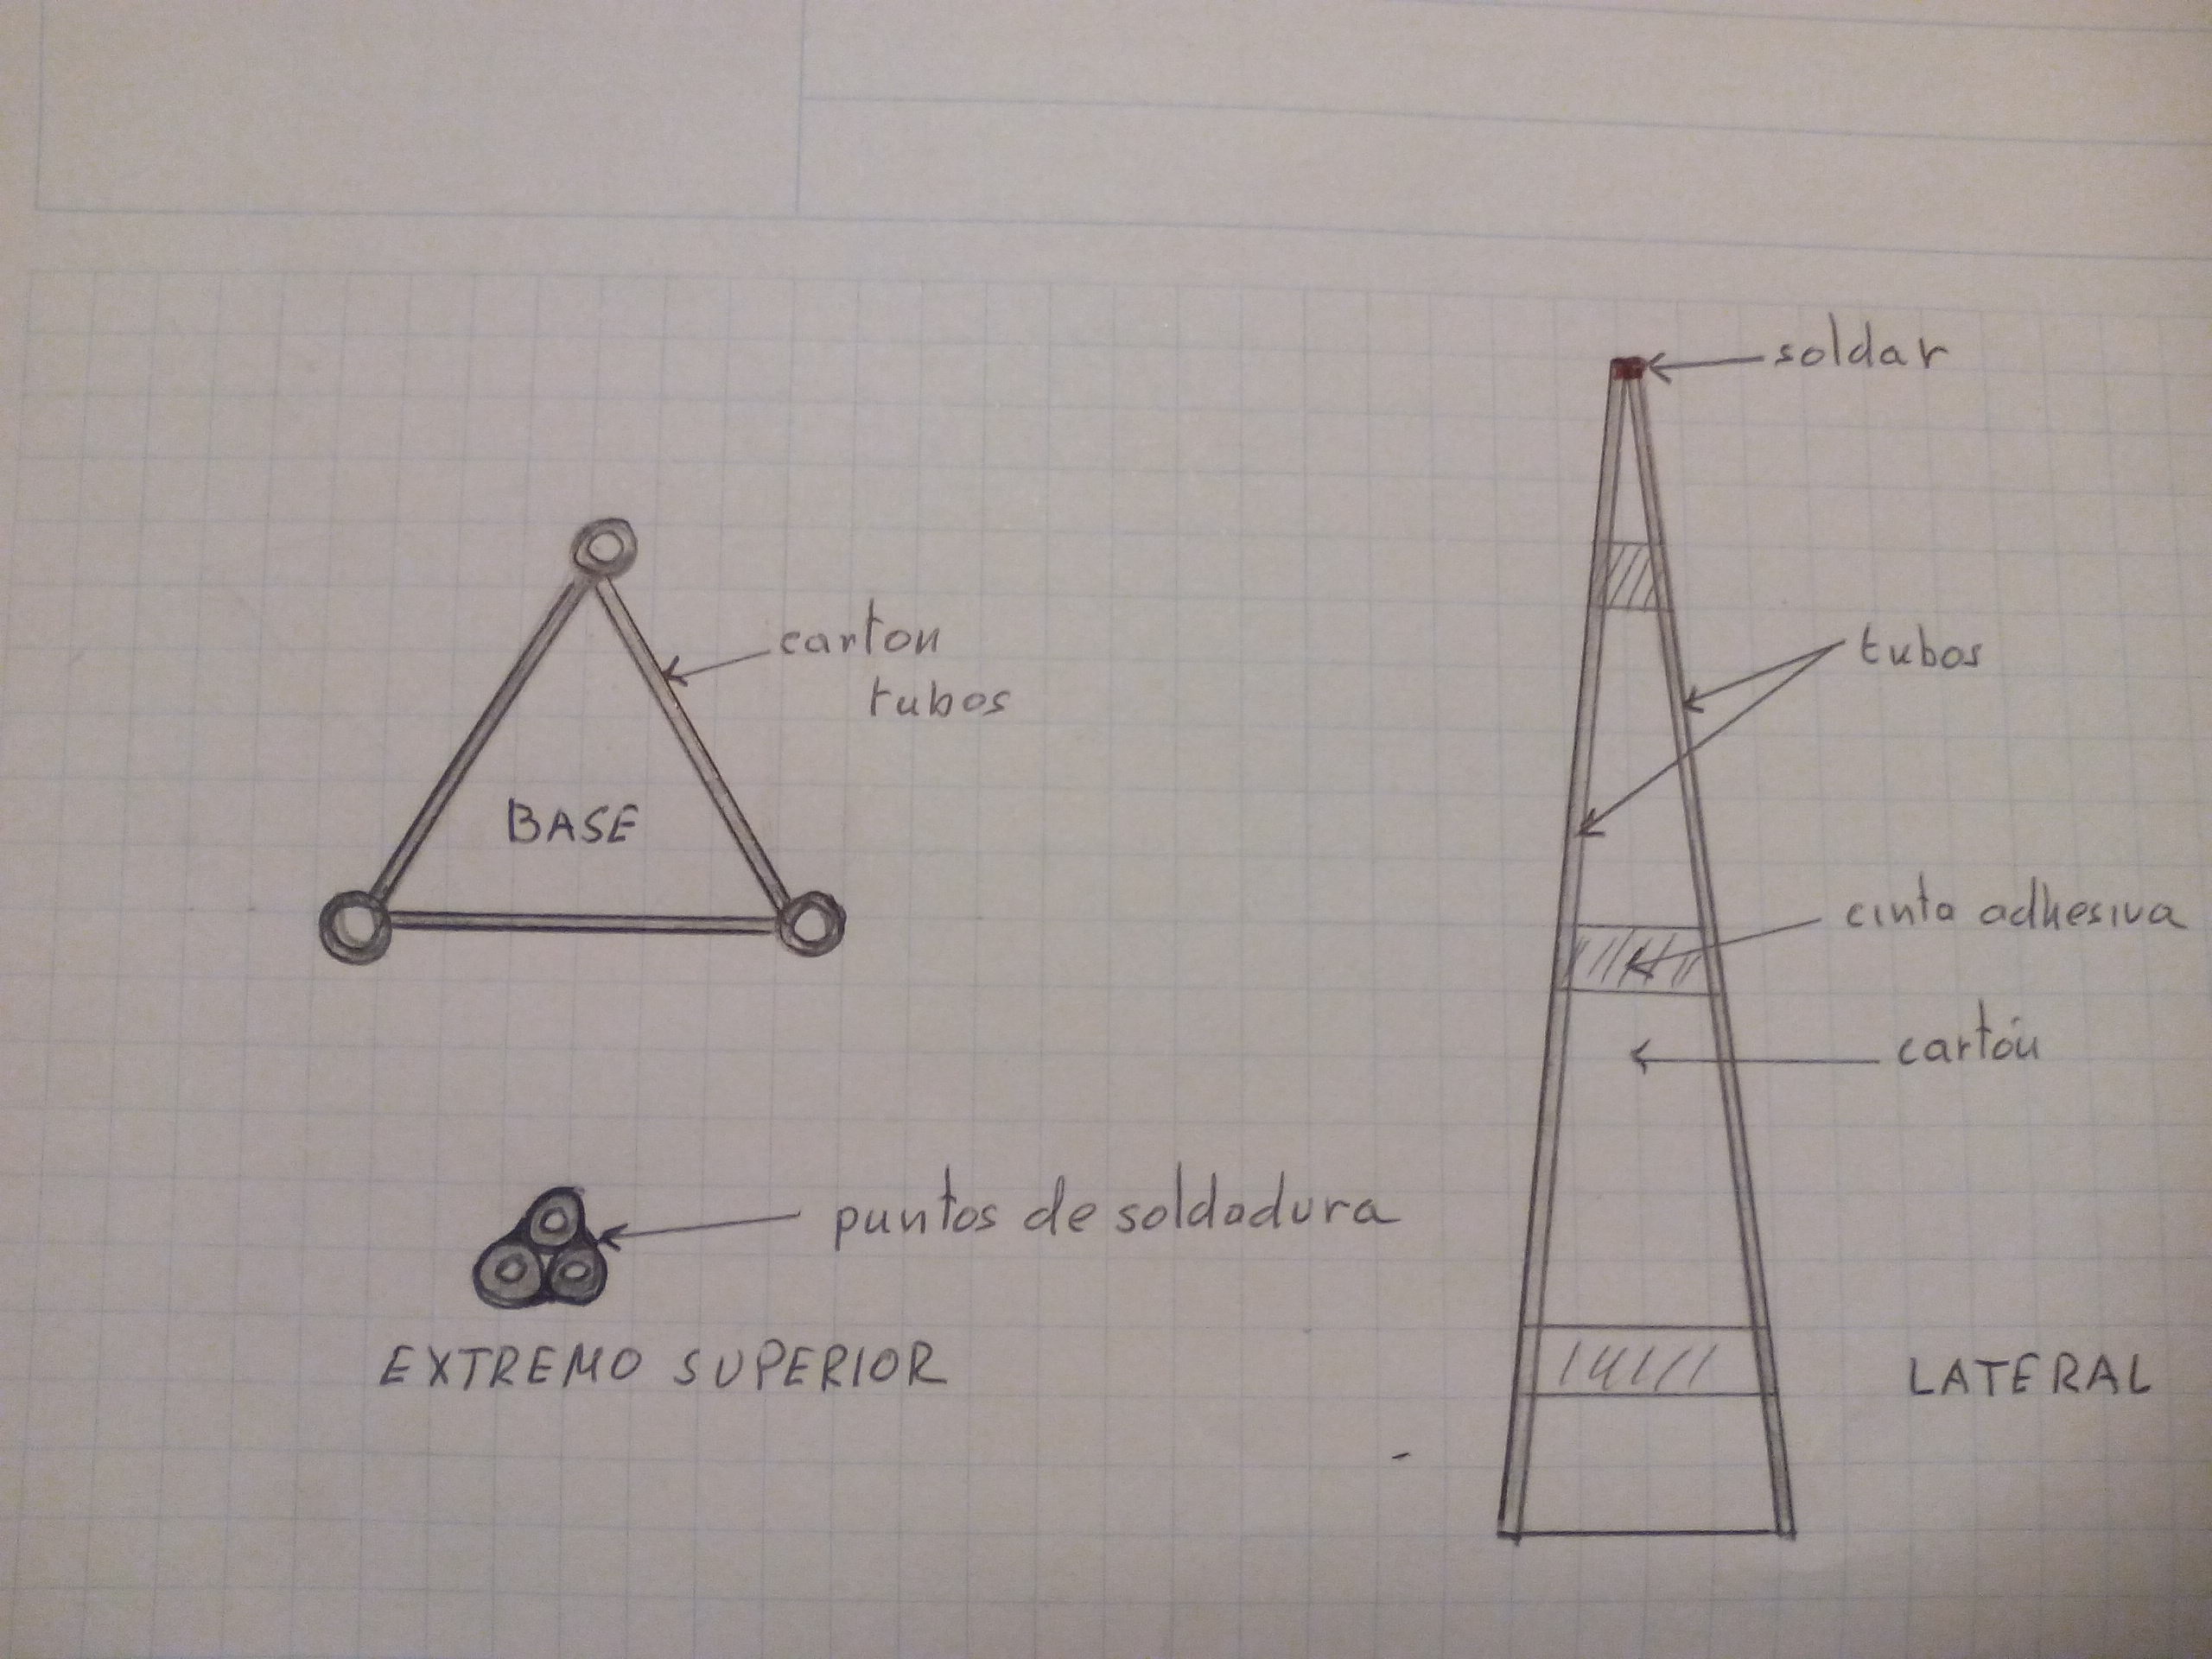 soldar
carton
tubos
tubos
BASE
cinta adhesiva
cartón
puntos de soldadura
EXTREMO SUPERIOR
LATERAL